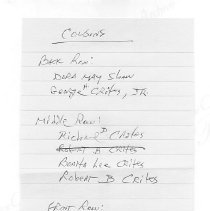 COUSINS
BACK ROW:
DORA MAY SHAW
GEORGE CRITES, JR.
MIDDLE ROW:
RICHARD D CRITES
ROBERT B CRITES
BERTHA LEE CRITES
ROBERT B CRITES
FRONT ROW: